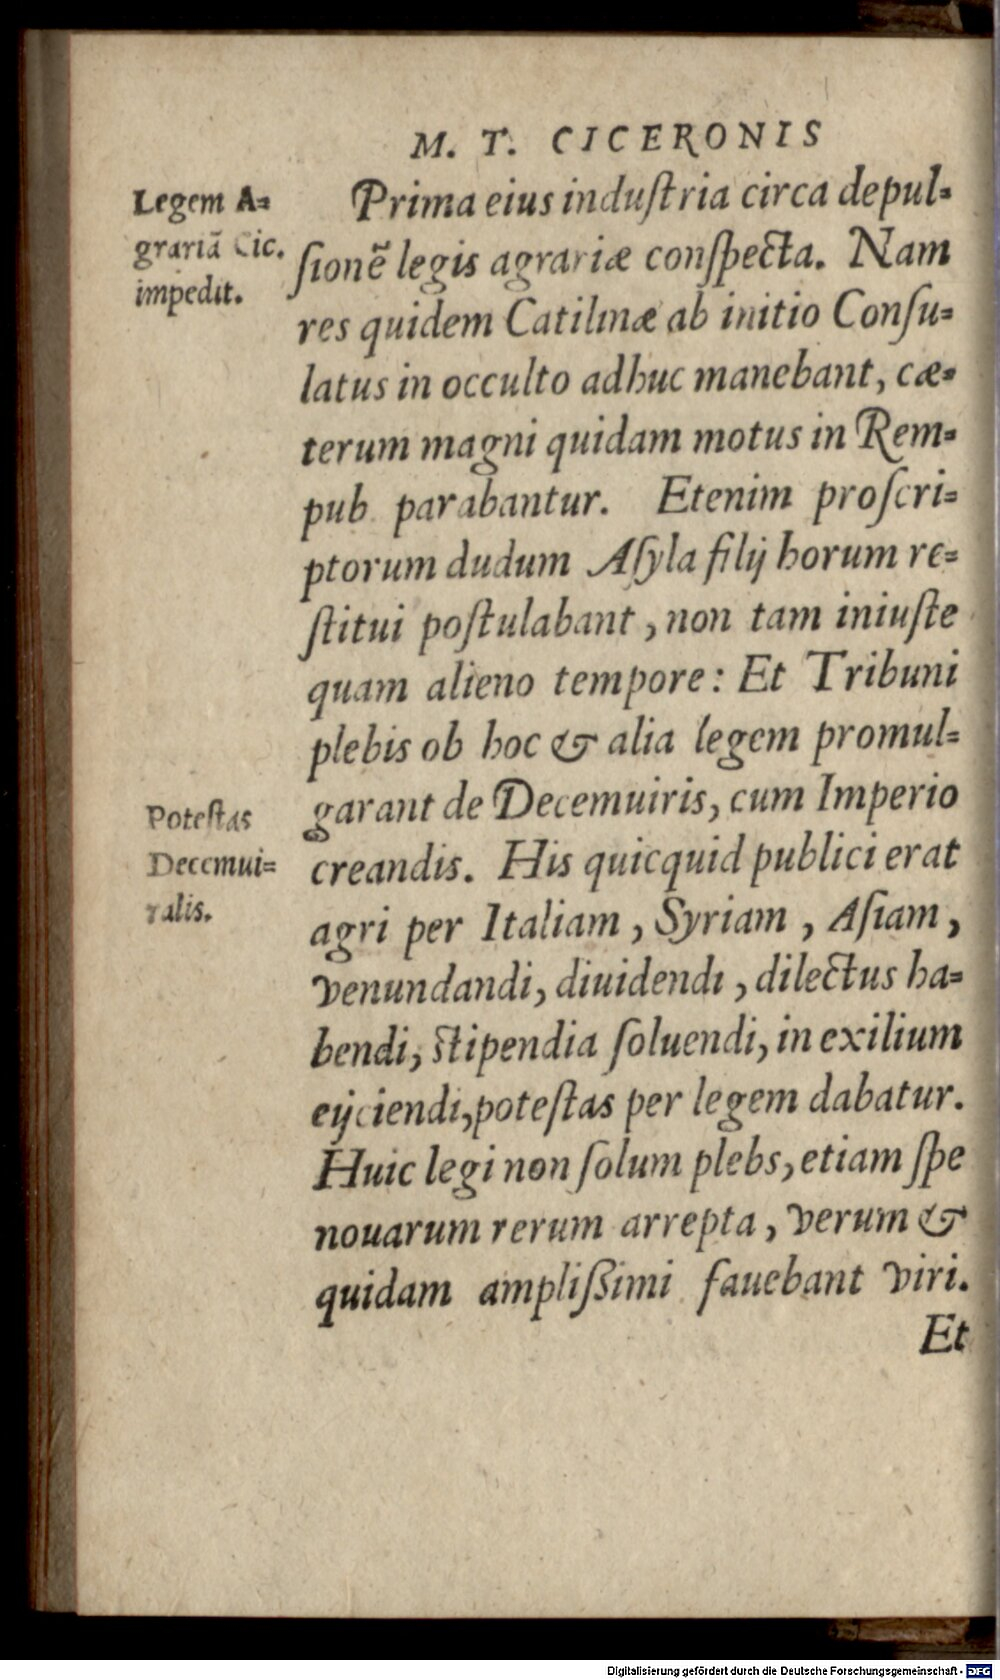 M. T. CICERONIS
Legem A=
grariā Cic.
impedit.
Prima eius induſtria circa depul=
ſionē legis agrariæ conſpecta. Nam
res quidem Catilinæ ab initio Conſu=
latus in occulto adhuc manebant, cæ=
terum magni quidam motus in Rem=
pub. parabantur. Etenim proſcri=
ptorum dudum Aſyla filij horum re=
ſtitui poſtulabant, non tam iniuſte
quam alieno tempore: Et Tribuni
plebis ob hoc & alia legem promul=
Poteſtas
Decemui=
ralis.
garant de Decemuiris, cum Imperio
creandis. His quicquid publici erat
agri per Italiam, Syriam, Aſiam,
venundandi, diuidendi, dilectus ha=
bendi, ſtipendia ſoluendi, in exilium
eijciendi, poteſtas per legem dabatur.
Huic legi non ſolum plebs, etiam ſpe
nouarum rerum arrepta, verum &
quidam ampliſsimi fauebant viri.
Et
Digitalisierung gefördert durch die Deutsche Forschungsgemeinschaft - DFG